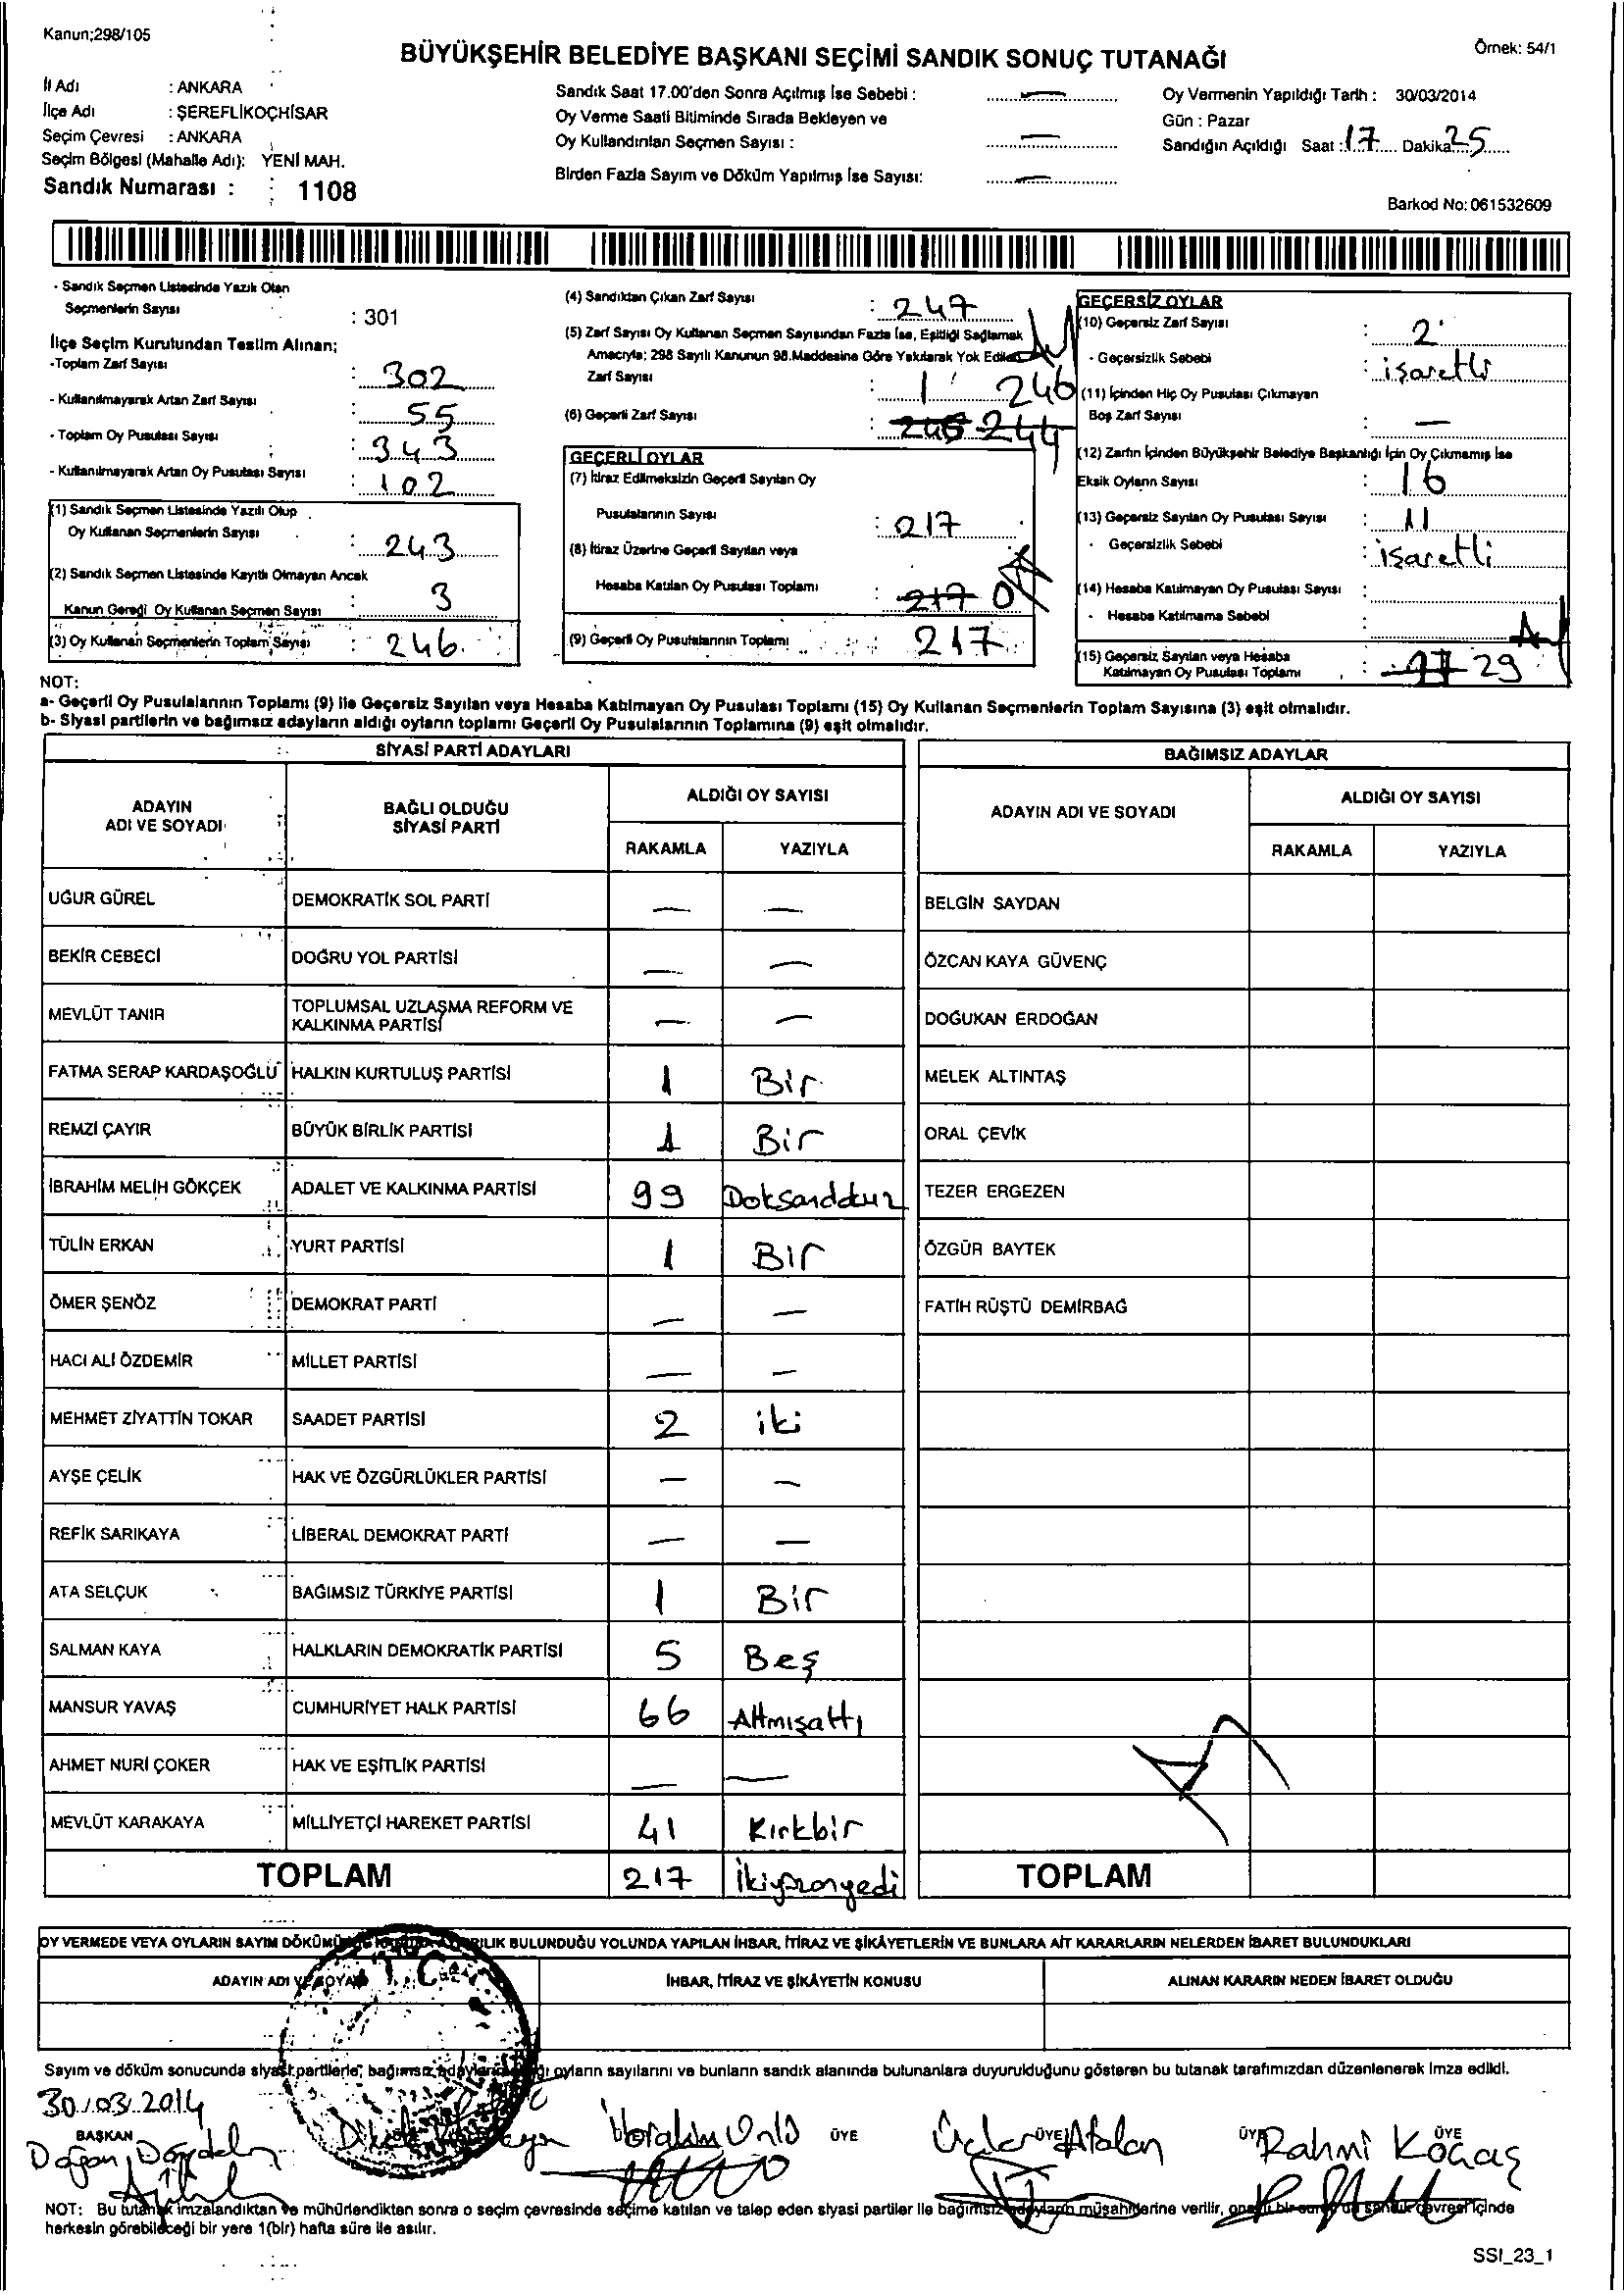 Kanun;298/105
Örnek: 54/1
BÜYÜKŞEHİR BELEDİYE BAŞKANI SEÇİMİ SANDIK SONUÇ TUTANAĞI
İl Adı : ANKARA
İlçe Adı : ŞEREFLİKOÇHİSAR
Seçim Çevresi : ANKARA
Seçim Bölgesi (Mahalle Adı): YENİ MAH.
Sandık Numarası : 1108
Sandık Saat 17.00'den Sonra Açılmış İse Sebebi : —
Oy Verme Saati Bitiminde Sırada Bekleyen ve
Oy Kullandırılan Seçmen Sayısı : —
Birden Fazla Sayım ve Döküm Yapılmış İse Sayısı: —
Oy Vermenin Yapıldığı Tarih : 30/03/2014
Gün : Pazar
Sandığın Açıldığı Saat : 17 Dakika 25
Barkod No: 061532609
- Sandık Seçmen Listesinde Yazılı Olan
Seçmenlerin Sayısı : 301
İlçe Seçim Kurulundan Teslim Alınan;
-Toplam Zarf Sayısı : 302
- Kullanılmayarak Artan Zarf Sayısı : 55
- Toplam Oy Pusulası Sayısı : 343
- Kullanılmayarak Artan Oy Pusulası Sayısı : 102
(1) Sandık Seçmen Listesinde Yazılı Olup
Oy Kullanan Seçmenlerin Sayısı : 243
(2) Sandık Seçmen Listesinde Kayıtlı Olmayan Ancak
Kanun Gereği Oy Kullanan Seçmen Sayısı : 3
(3) Oy Kullanan Seçmenlerin Toplam Sayısı : 246
(4) Sandıktan Çıkan Zarf Sayısı : 247
(5) Zarf Sayısı Oy Kullanan Seçmen Sayısından Fazla İse, Eşitliği Sağlamak
Amacıyla; 298 Sayılı Kanunun 98.Maddesine Göre Yakılarak Yok Edilen
Zarf Sayısı : 1
246
(6) Geçerli Zarf Sayısı : 246 244
GEÇERLİ OYLAR
(7) İtiraz Edilmeksizin Geçerli Sayılan Oy
Pusulalarının Sayısı : 217
(8) İtiraz Üzerine Geçerli Sayılan veya
Hesaba Katılan Oy Pusulası Toplamı : 217 0
(9) Geçerli Oy Pusulalarının Toplamı : 217
GEÇERSİZ OYLAR
(10) Geçersiz Zarf Sayısı : 2
- Geçersizlik Sebebi : işaretli
(11) İçinden Hiç Oy Pusulası Çıkmayan
Boş Zarf Sayısı : —
(12) Zarfın İçinden Büyükşehir Belediye Başkanlığı İçin Oy Çıkmamış İse
Eksik Oyların Sayısı : 16
(13) Geçersiz Sayılan Oy Pusulası Sayısı : 11
- Geçersizlik Sebebi : işaretli
(14) Hesaba Katılmayan Oy Pusulası Sayısı :
- Hesaba Katılmama Sebebi :
(15) Geçersiz Sayılan veya Hesaba
Katılmayan Oy Pusulası Toplamı : 29
NOT:
a- Geçerli Oy Pusulalarının Toplamı (9) ile Geçersiz Sayılan veya Hesaba Katılmayan Oy Pusulası Toplamı (15) Oy Kullanan Seçmenlerin Toplam Sayısına (3) eşit olmalıdır.
b- Siyasi partilerin ve bağımsız adayların aldığı oyların toplamı Geçerli Oy Pusulalarının Toplamına (9) eşit olmalıdır.
SİYASİ PARTİ ADAYLARI
ADAYIN ADI VE SOYADI BAĞLI OLDUĞU SİYASİ PARTİ ALDIĞI OY SAYISI
RAKAMLA YAZIYLA
UĞUR GÜREL DEMOKRATİK SOL PARTİ — —
BEKİR CEBECİ DOĞRU YOL PARTİSİ — —
MEVLÜT TANIR TOPLUMSAL UZLAŞMA REFORM VE KALKINMA PARTİSİ — —
FATMA SERAP KARDAŞOĞLU HALKIN KURTULUŞ PARTİSİ 1 Bir
REMZİ ÇAYIR BÜYÜK BİRLİK PARTİSİ 1 Bir
İBRAHİM MELİH GÖKÇEK ADALET VE KALKINMA PARTİSİ 99 Doksanddkuz
TÜLİN ERKAN YURT PARTİSİ 1 Bir
ÖMER ŞENÖZ DEMOKRAT PARTİ — —
HACI ALİ ÖZDEMİR MİLLET PARTİSİ — —
MEHMET ZİYATTİN TOKAR SAADET PARTİSİ 2 iki
AYŞE ÇELİK HAK VE ÖZGÜRLÜKLER PARTİSİ — —
REFİK SARIKAYA LİBERAL DEMOKRAT PARTİ — —
ATA SELÇUK BAĞIMSIZ TÜRKİYE PARTİSİ 1 Bir
SALMAN KAYA HALKLARIN DEMOKRATİK PARTİSİ 5 Beş
MANSUR YAVAŞ CUMHURİYET HALK PARTİSİ 66 Altmışaltı
AHMET NURİ ÇOKER HAK VE EŞİTLİK PARTİSİ — —
MEVLÜT KARAKAYA MİLLİYETÇİ HAREKET PARTİSİ 41 Kırkbir
TOPLAM 217 İkiyüzonyedi
BAĞIMSIZ ADAYLAR
ADAYIN ADI VE SOYADI ALDIĞI OY SAYISI
RAKAMLA YAZIYLA
BELGİN SAYDAN
ÖZCAN KAYA GÜVENÇ
DOĞUKAN ERDOĞAN
MELEK ALTINTAŞ
ORAL ÇEVİK
TEZER ERGEZEN
ÖZGÜR BAYTEK
FATİH RÜŞTÜ DEMİRBAĞ
TOPLAM
OY VERMEDE VEYA OYLARIN SAYIM DÖKÜMÜ BULUNDUĞU YOLUNDA YAPILAN İHBAR, İTİRAZ VE ŞİKÂYETLERİN VE BUNLARA AİT KARARLARIN NELERDEN İBARET BULUNDUKLARI
ADAYIN ADI VE SOYADI İHBAR, İTİRAZ VE ŞİKÂYETİN KONUSU ALINAN KARARIN NEDEN İBARET OLDUĞU
T.C.
Sayım ve döküm sonucunda siyasi partilerle, bağımsız adayların oyların sayılarını ve bunların sandık alanında bulunanlara duyurulduğunu gösteren bu tutanak tarafımızdan düzenlenerek imza edildi.
30/03/2014
BAŞKAN ÜYE ÜYE ÜYE ÜYE
Doğan İbrahim Ünlü Atalan Rahmi Koçaş
NOT: Bu tutanak imzalandıktan ve mühürlendikten sonra o seçim çevresinde seçime katılan ve talep eden siyasi partiler ile bağımsız adayların müşahitlerine verilir, onaylı bir sureti de sandık çevresi içinde
herkesin görebileceği bir yere 1(bir) hafta süre ile asılır.
SSI_23_1